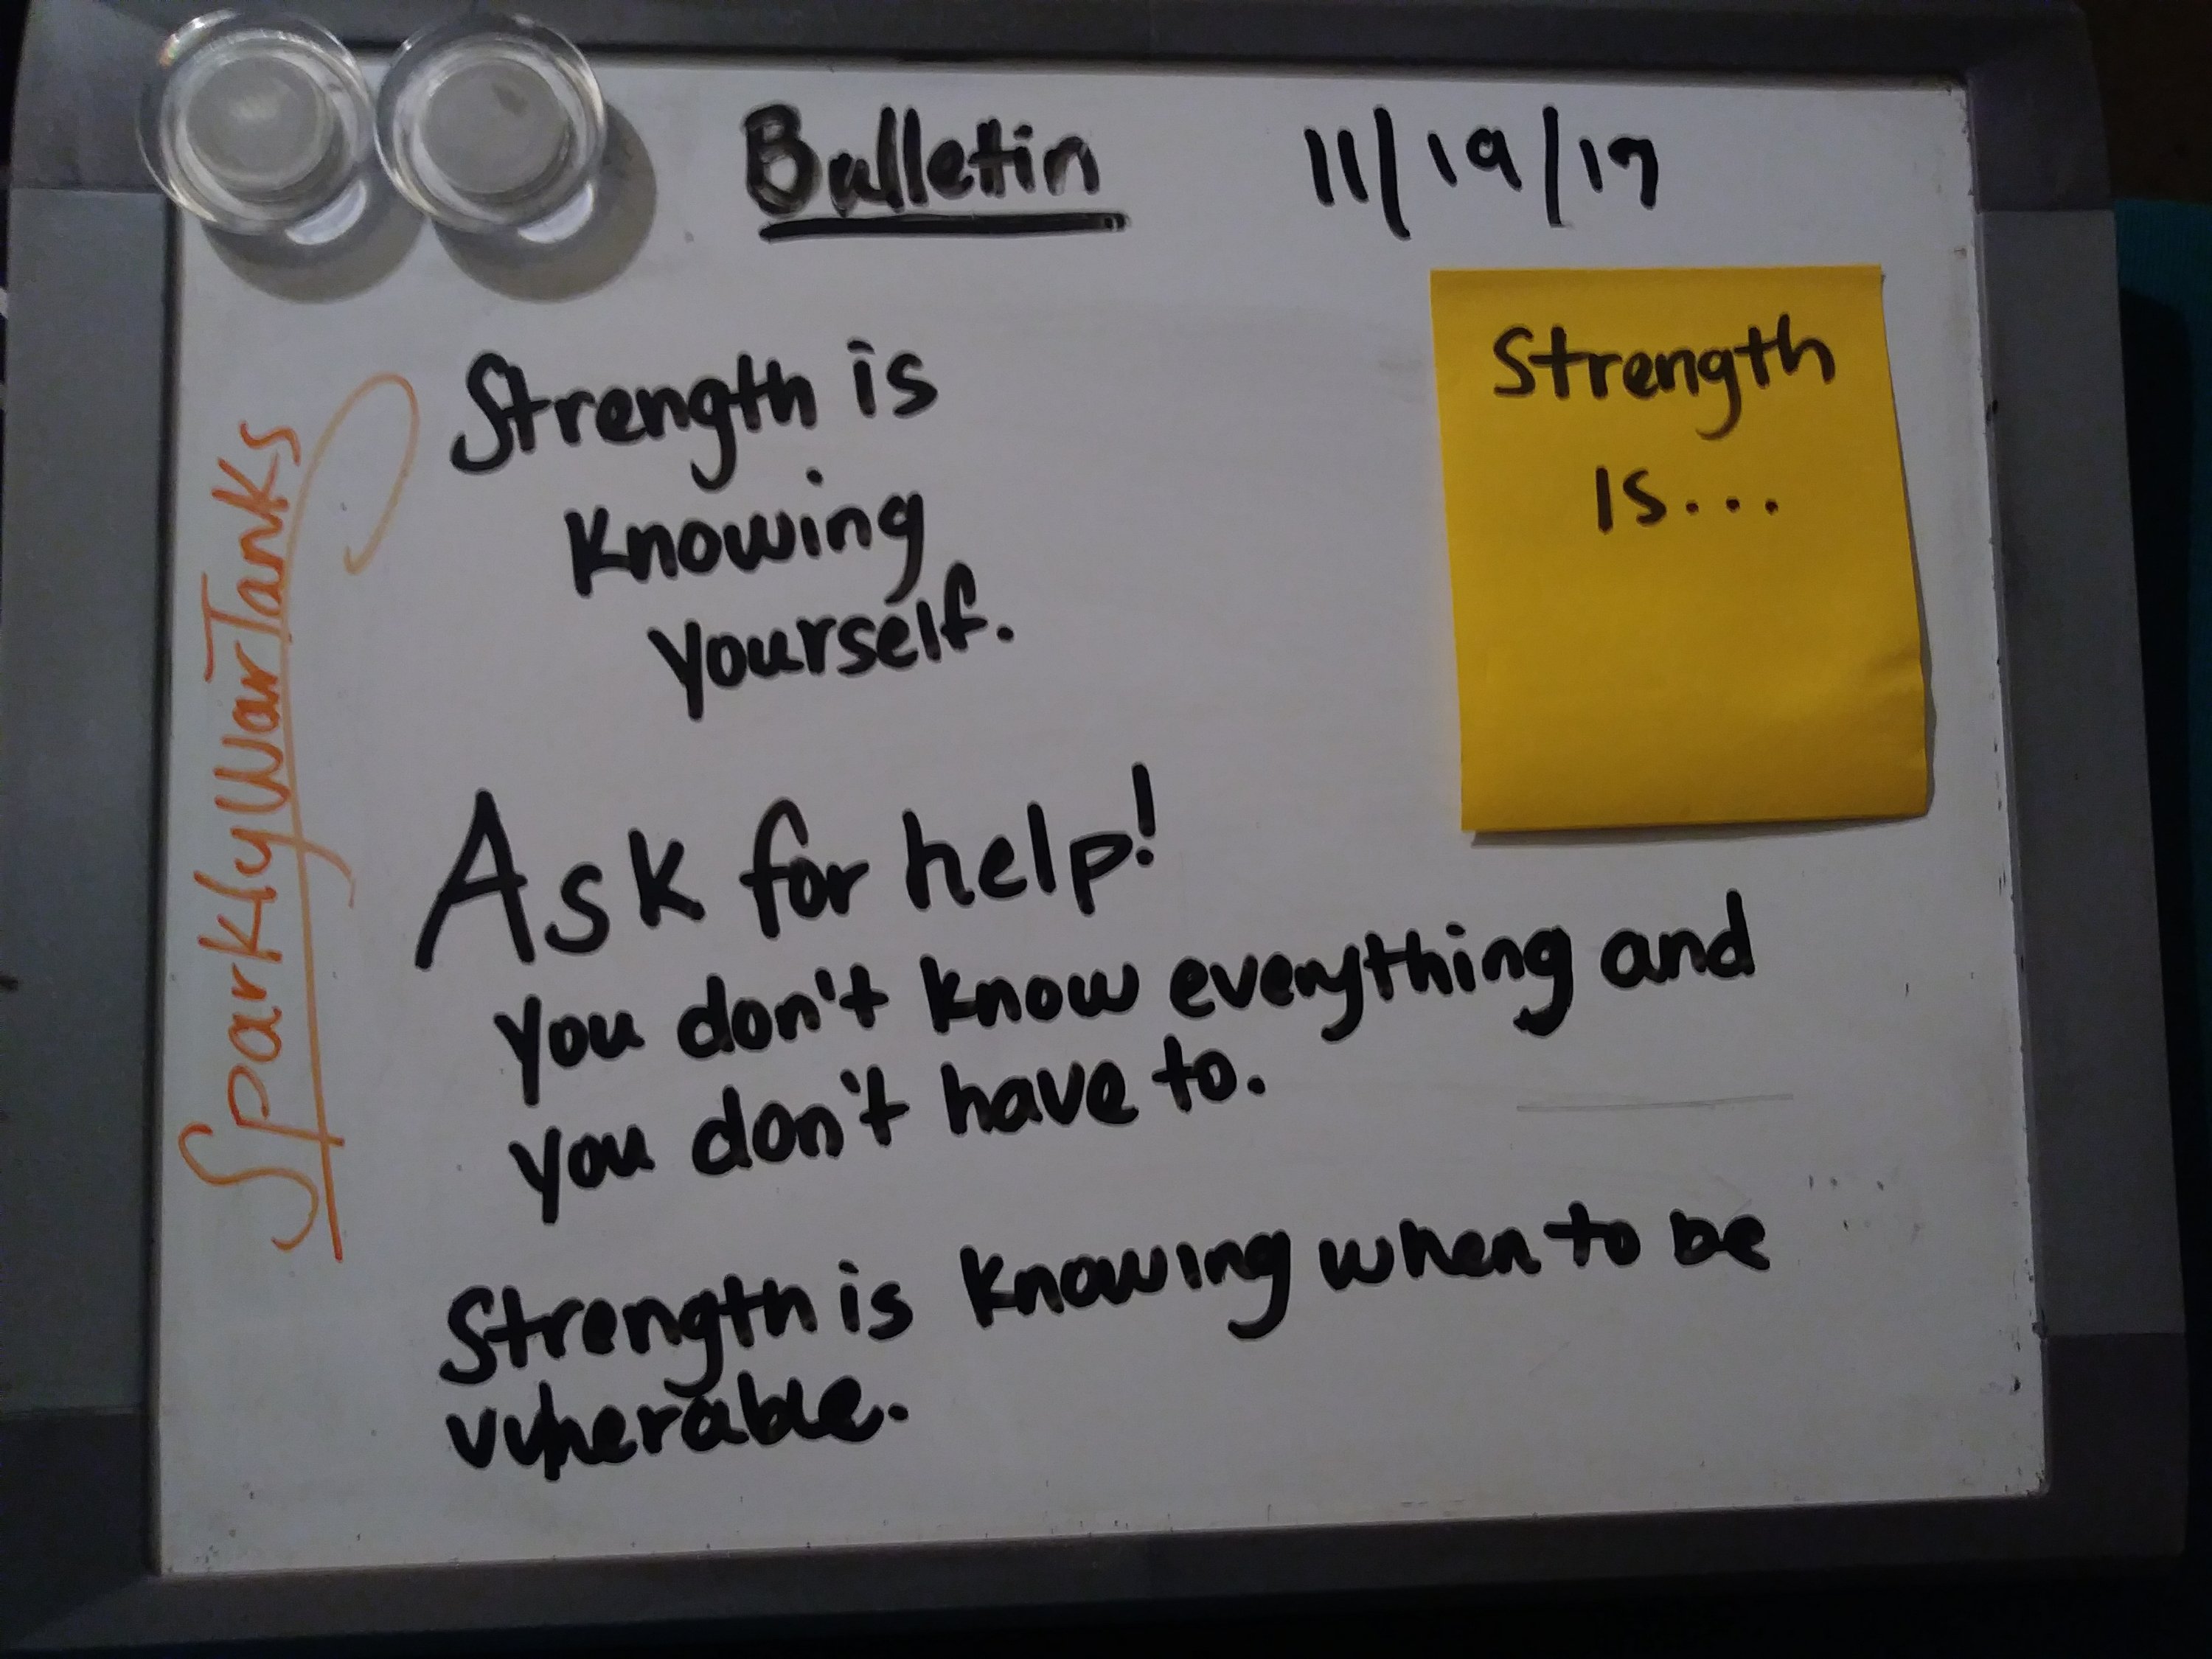 Bulletin 11/19/17
Strength
Is...
Strength is
Knowing
yourself.
Ask for help!
you don't know everything and
you don't have to.
Strength is knowing when to be
vulnerable.
SparklyWarTanks